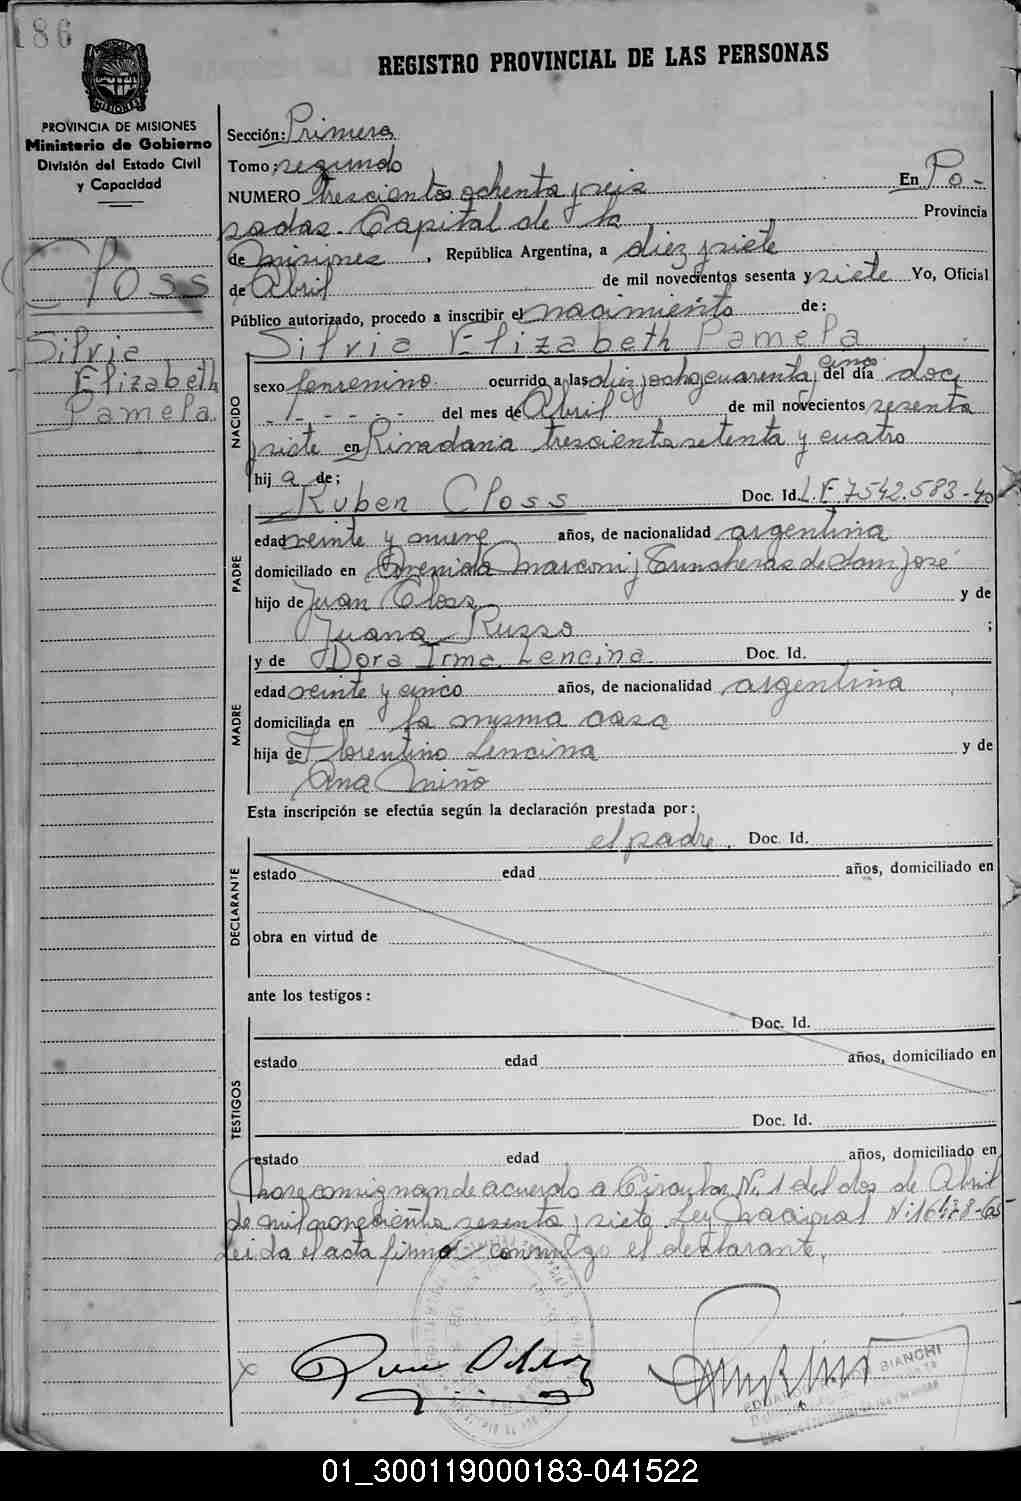 186
REGISTRO PROVINCIAL DE LAS PERSONAS
MISIONES
PROVINCIA DE MISIONES
Ministerio de Gobierno
División del Estado Civil
y Capacidad
Closs
Silvia
Elizabeth
Pamela
Sección: Primera
Tomo; segundo
NUMERO trescientos ochenta y seis En Po-
sadas. Capital de la Provincia
de Misiones, República Argentina, a diez y siete
de Abril de mil novecientos sesenta y siete Yo, Oficial
Público autorizado, procedo a inscribir el nacimiento de:
Silvia Elizabeth Pamela
NACIDO
sexo femenino ocurrido a las diez y ocho y cuarenta y cinco del día doce
del mes de Abril de mil novecientos sesenta
y siete en Rivadavia trescientos setenta y cuatro
hij a de;
Ruben Closs Doc. Id. L.E. 7542.583-
PADRE
edad veinte y nueve años, de nacionalidad argentina
domiciliado en Avenida Marconi y Trincheras de San José
hijo de Juan Closs y de
Juana Russo ;
y de Dora Irma Lencina Doc. Id.
MADRE
edad veinte y cinco años, de nacionalidad argentina
domiciliada en la misma casa
hija de Florentino Lencina y de
Ana Miño
Esta inscripción se efectúa según la declaración prestada por:
el padre. Doc. Id.
DECLARANTE
estado edad años, domiciliado en
obra en virtud de
ante los testigos:
Doc. Id.
TESTIGOS
estado edad años, domiciliado en
Doc. Id.
estado edad años, domiciliado en
consignan de acuerdo a Circular Nº 1 del dos de Abril
de mil novecientos sesenta y siete Ley Nacional Nº 16478-
Leida el acta firma conmigo el declarante.
BIANCHI
01_300119000183-041522